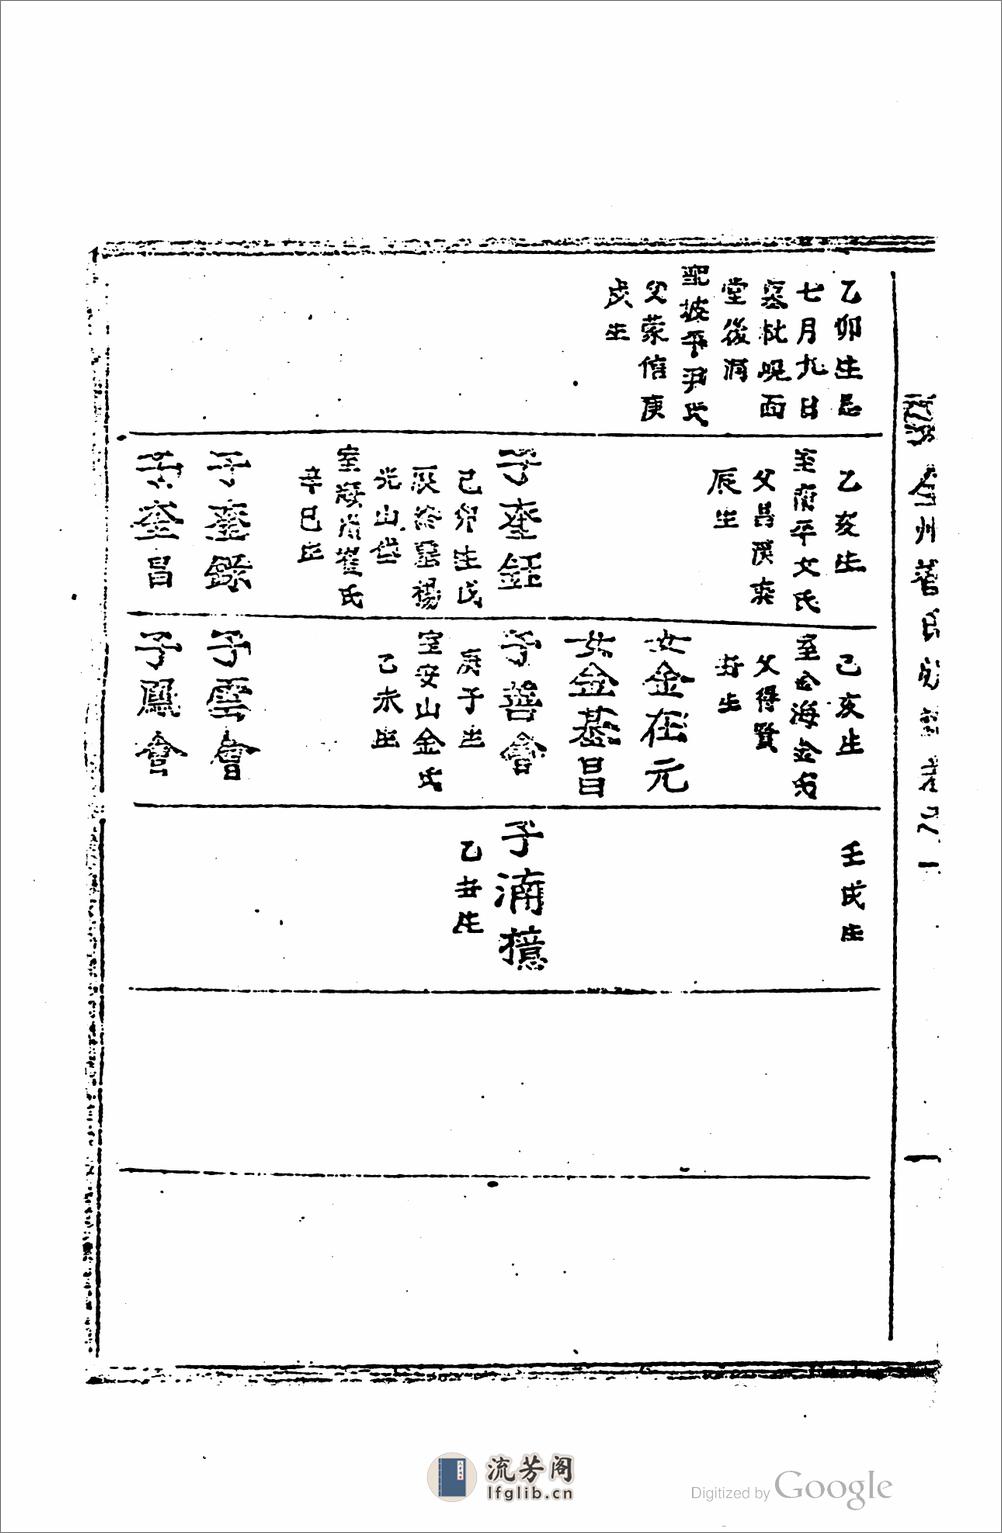 乙卯生忌
七月九日
墓枇峴面
堂後洞
配坡平尹氏
父蒙信庚
戌生
乙亥生
室南平文氏
父昌漢庚
辰生
子奎鈺
己卯生戊
光山
室 崔氏
辛巳生
子奎錄
子奎昌
己亥生
室金海金氏
父得賢
丑生
女金在元
女金基昌
子善會
庚子生
室安山金氏
乙未生
子雲會
子鳳會
壬戌生
子湳檍
乙丑生
州
一
一
流芳阁
lfglib.cn
Digitized by Google